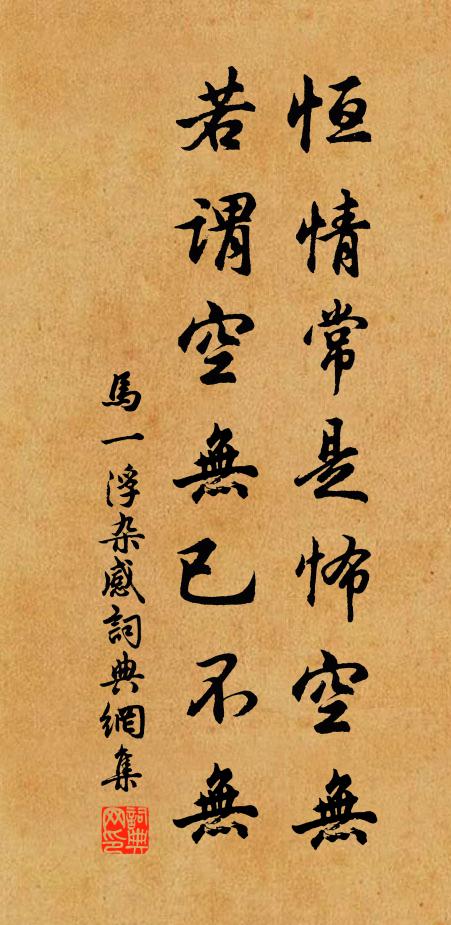 恒情常是怖空無
若謂空無已不無
馬一浮杂感詞典網集
詞典網印